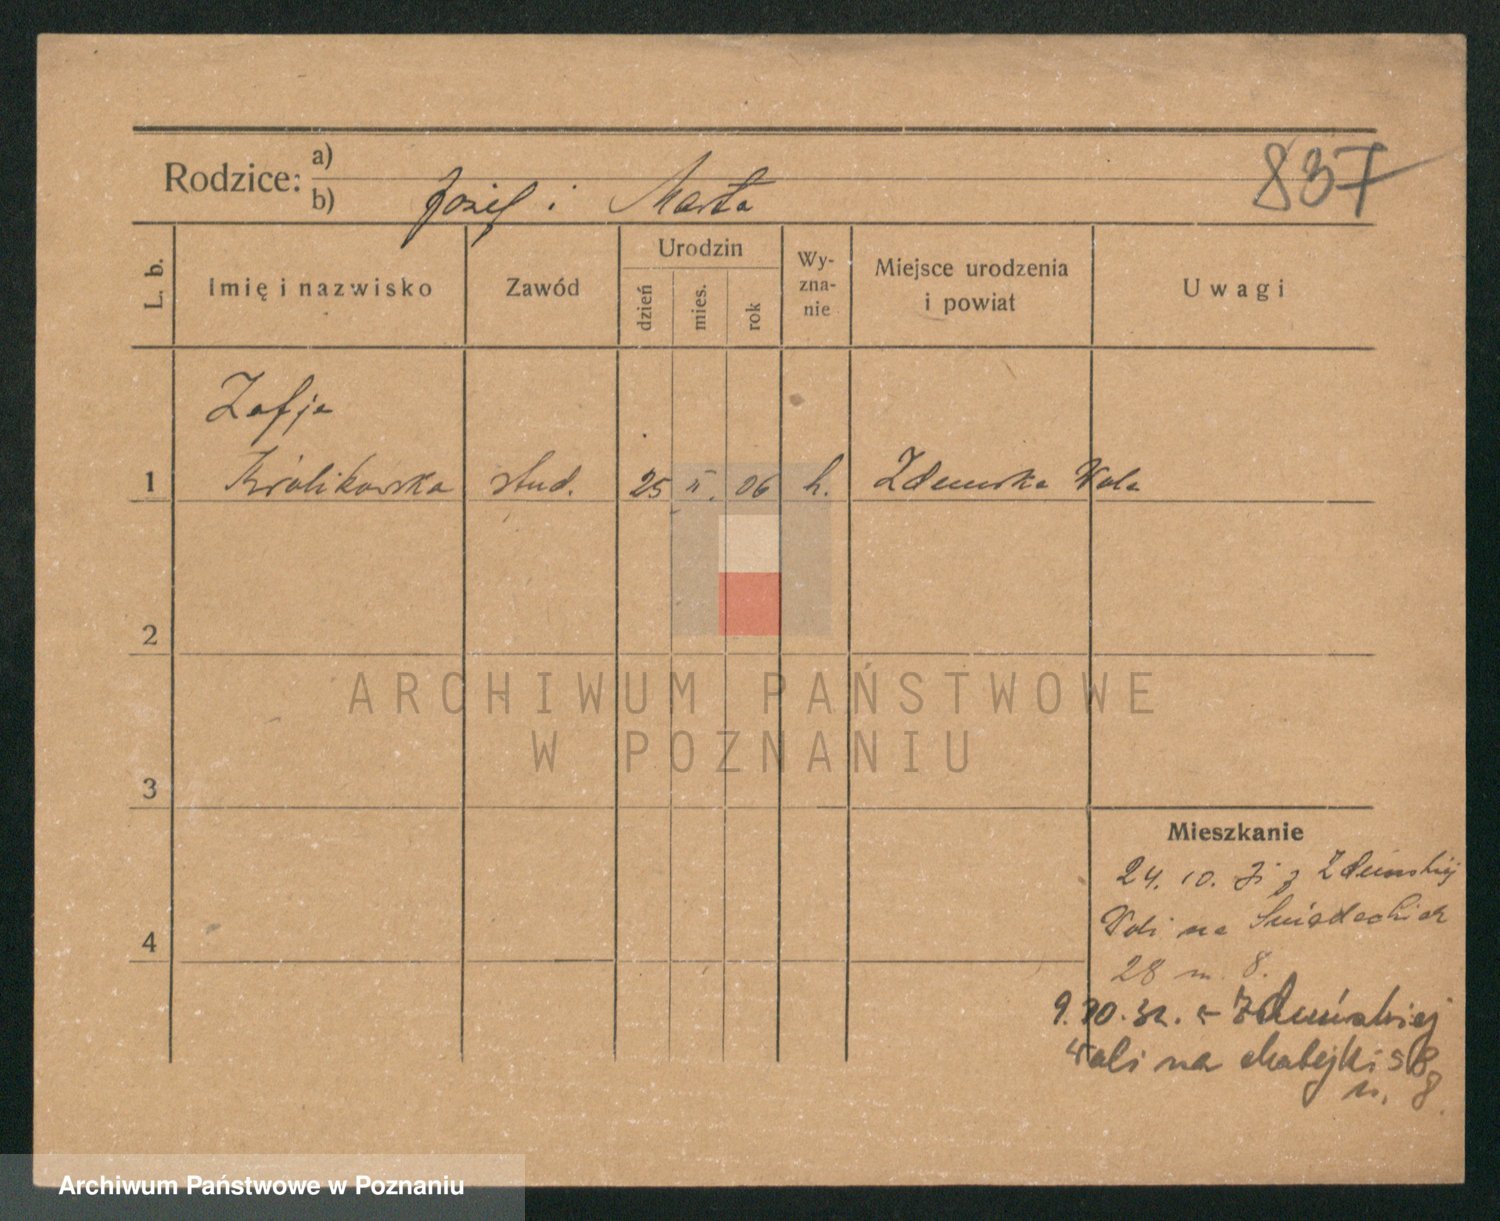 Rodzice:
a)
b) Józef i Marta
837
L. b.
Imię i nazwisko
Zawód
Urodzin
dzień
mies.
rok
Wy-
zna-
nie
Miejsce urodzenia
i powiat
Uwagi
Zofja
1 Królikowska stud. 25 II. 06 k. Zdunska Wola
2
3
4
ARCHIWUM PAŃSTWOWE
W POZNANIU
Mieszkanie
24. 10. z Zdunskiej
Woli na Śniadeckich
28 m. 8.
9.10.32. z Zduńskiej
Woli na Matejki 58
m. 8.
Archiwum Państwowe w Poznaniu